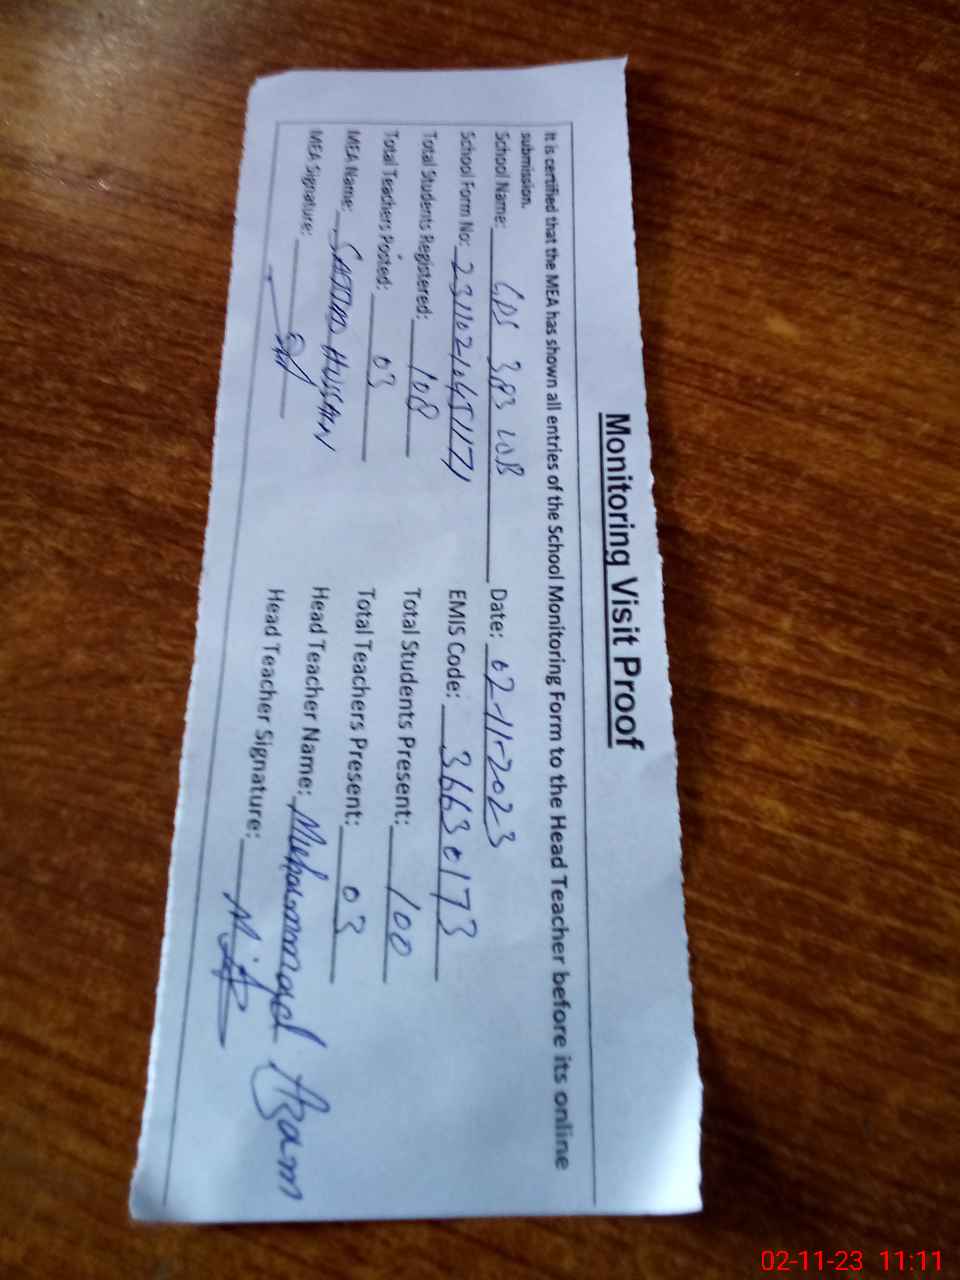 Monitoring Visit Proof
It is certified that the MEA has shown all entries of the School Monitoring Form to the Head Teacher before its online
submission.
School Name: GPS 383 WB Date: 02-11-2023
School Form No: 23110210451171 EMIS Code: 36630173
Total Students Registered: 108 Total Students Present: 100
Total Teachers Posted: 03 Total Teachers Present: 03
MEA Name: SAJJAD HUSSAIN Head Teacher Name: Muhammad Azam
MEA Signature: Head Teacher Signature:
02-11-23 11:11